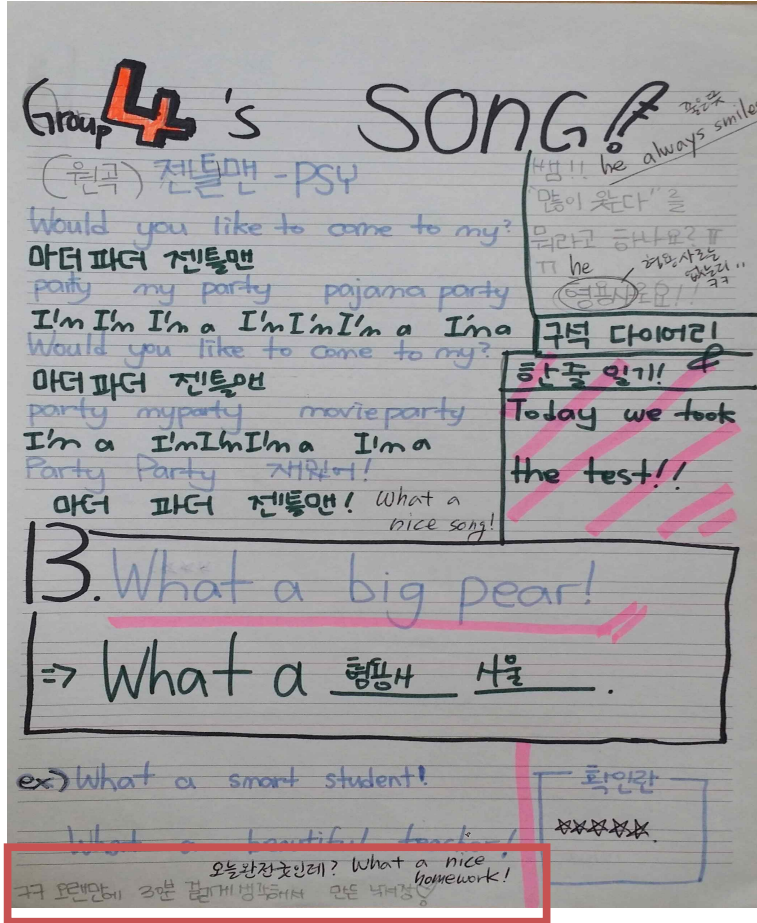 Group 4's SONG!
(원곡) 젠틀맨 - PSY
Would you like to come to my?
마더 파더 젠틀맨
party my party pajama party
I'm I'm I'm a I'm I'm I'm a I'm a
Would you like to come to my?
마더 파더 젠틀맨
party my party movie party
I'm a I'm I'm I'm a I'm a
Party Party 재밌어!
마더 파더 젠틀맨!
What a
nice song!
쌤!! he always smiles
"많이 웃는다"를
뭐라고 하나요? ㅠ
ㅠ he
형용사로는
없는디
ㅋㅋ
형용사로요!!
구석 다이어리!
한 줄 일기!
Today we took
the test!!
13. What a big pear!
=> What a 형용사 사물.
ex) What a smart student!
What a beautiful teacher!
확인란
☆☆☆☆☆
오늘완전굿인데? What a nice
homework!
ㅋㅋ 오랜만에 3분 끓게 생각해서 만든